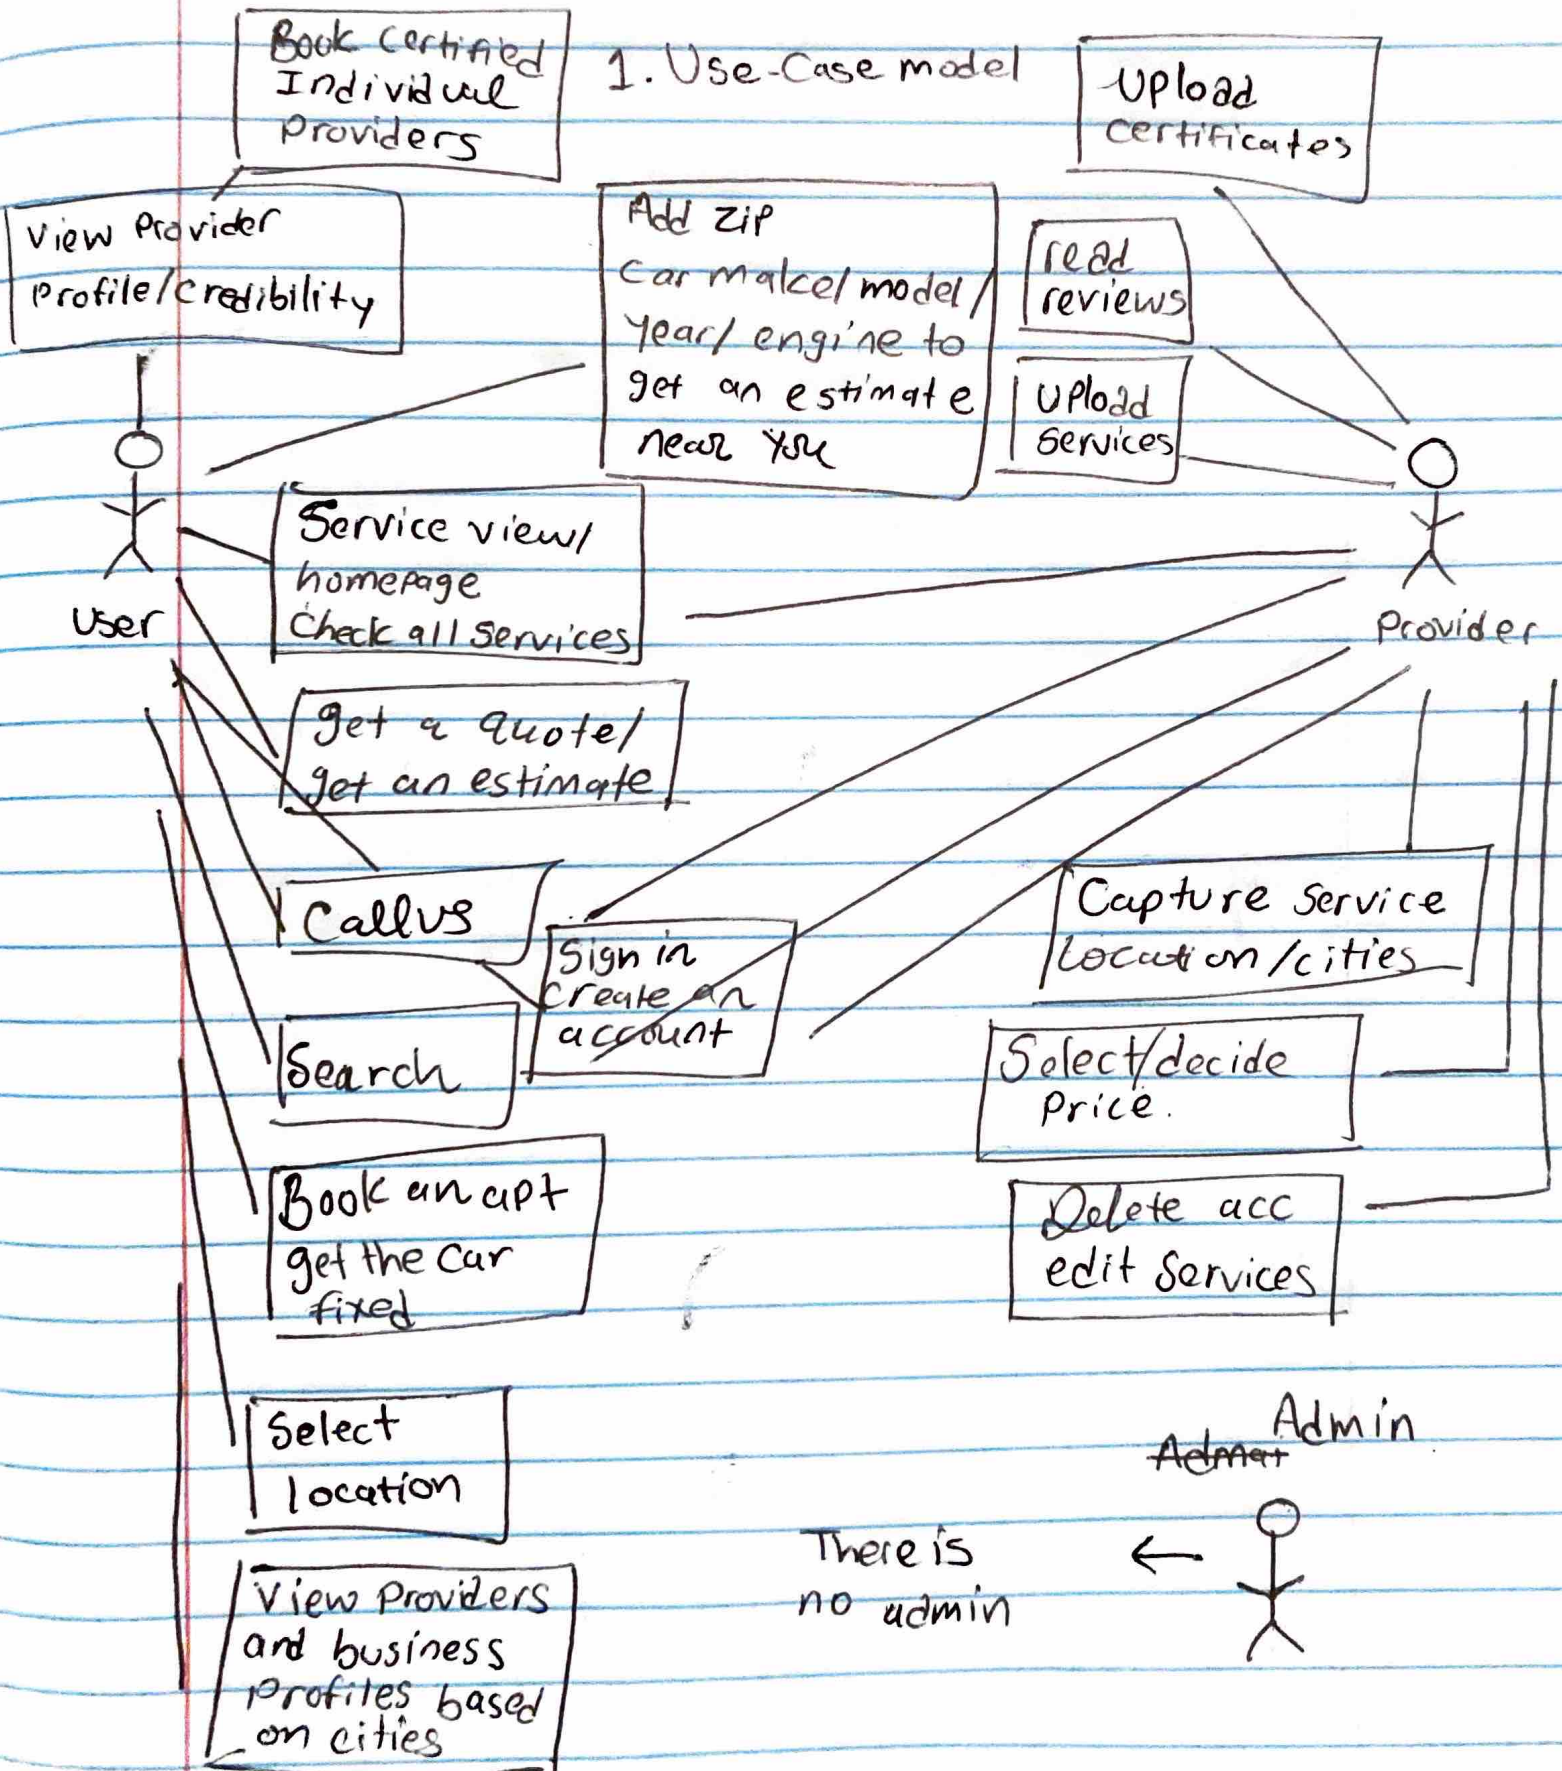 Book Certified
Individual
Providers
1. Use-Case model
Upload
certificates
View Provider
Profile/credibility
Add zip
Car make/model/
Year/ engine to
get an estimate
near you
read
reviews
Upload
services
Service view/
homepage
Check all services
User
Provider
get a quote/
get an estimate
Call us
Sign in
create an
account
Capture Service
Location/cities
Search
Select/decide
Price.
Book an apt
get the car
fixed
Delete acc
edit Services
Select
location
Admin
There is
no admin
View Providers
and business
Profiles based
on cities